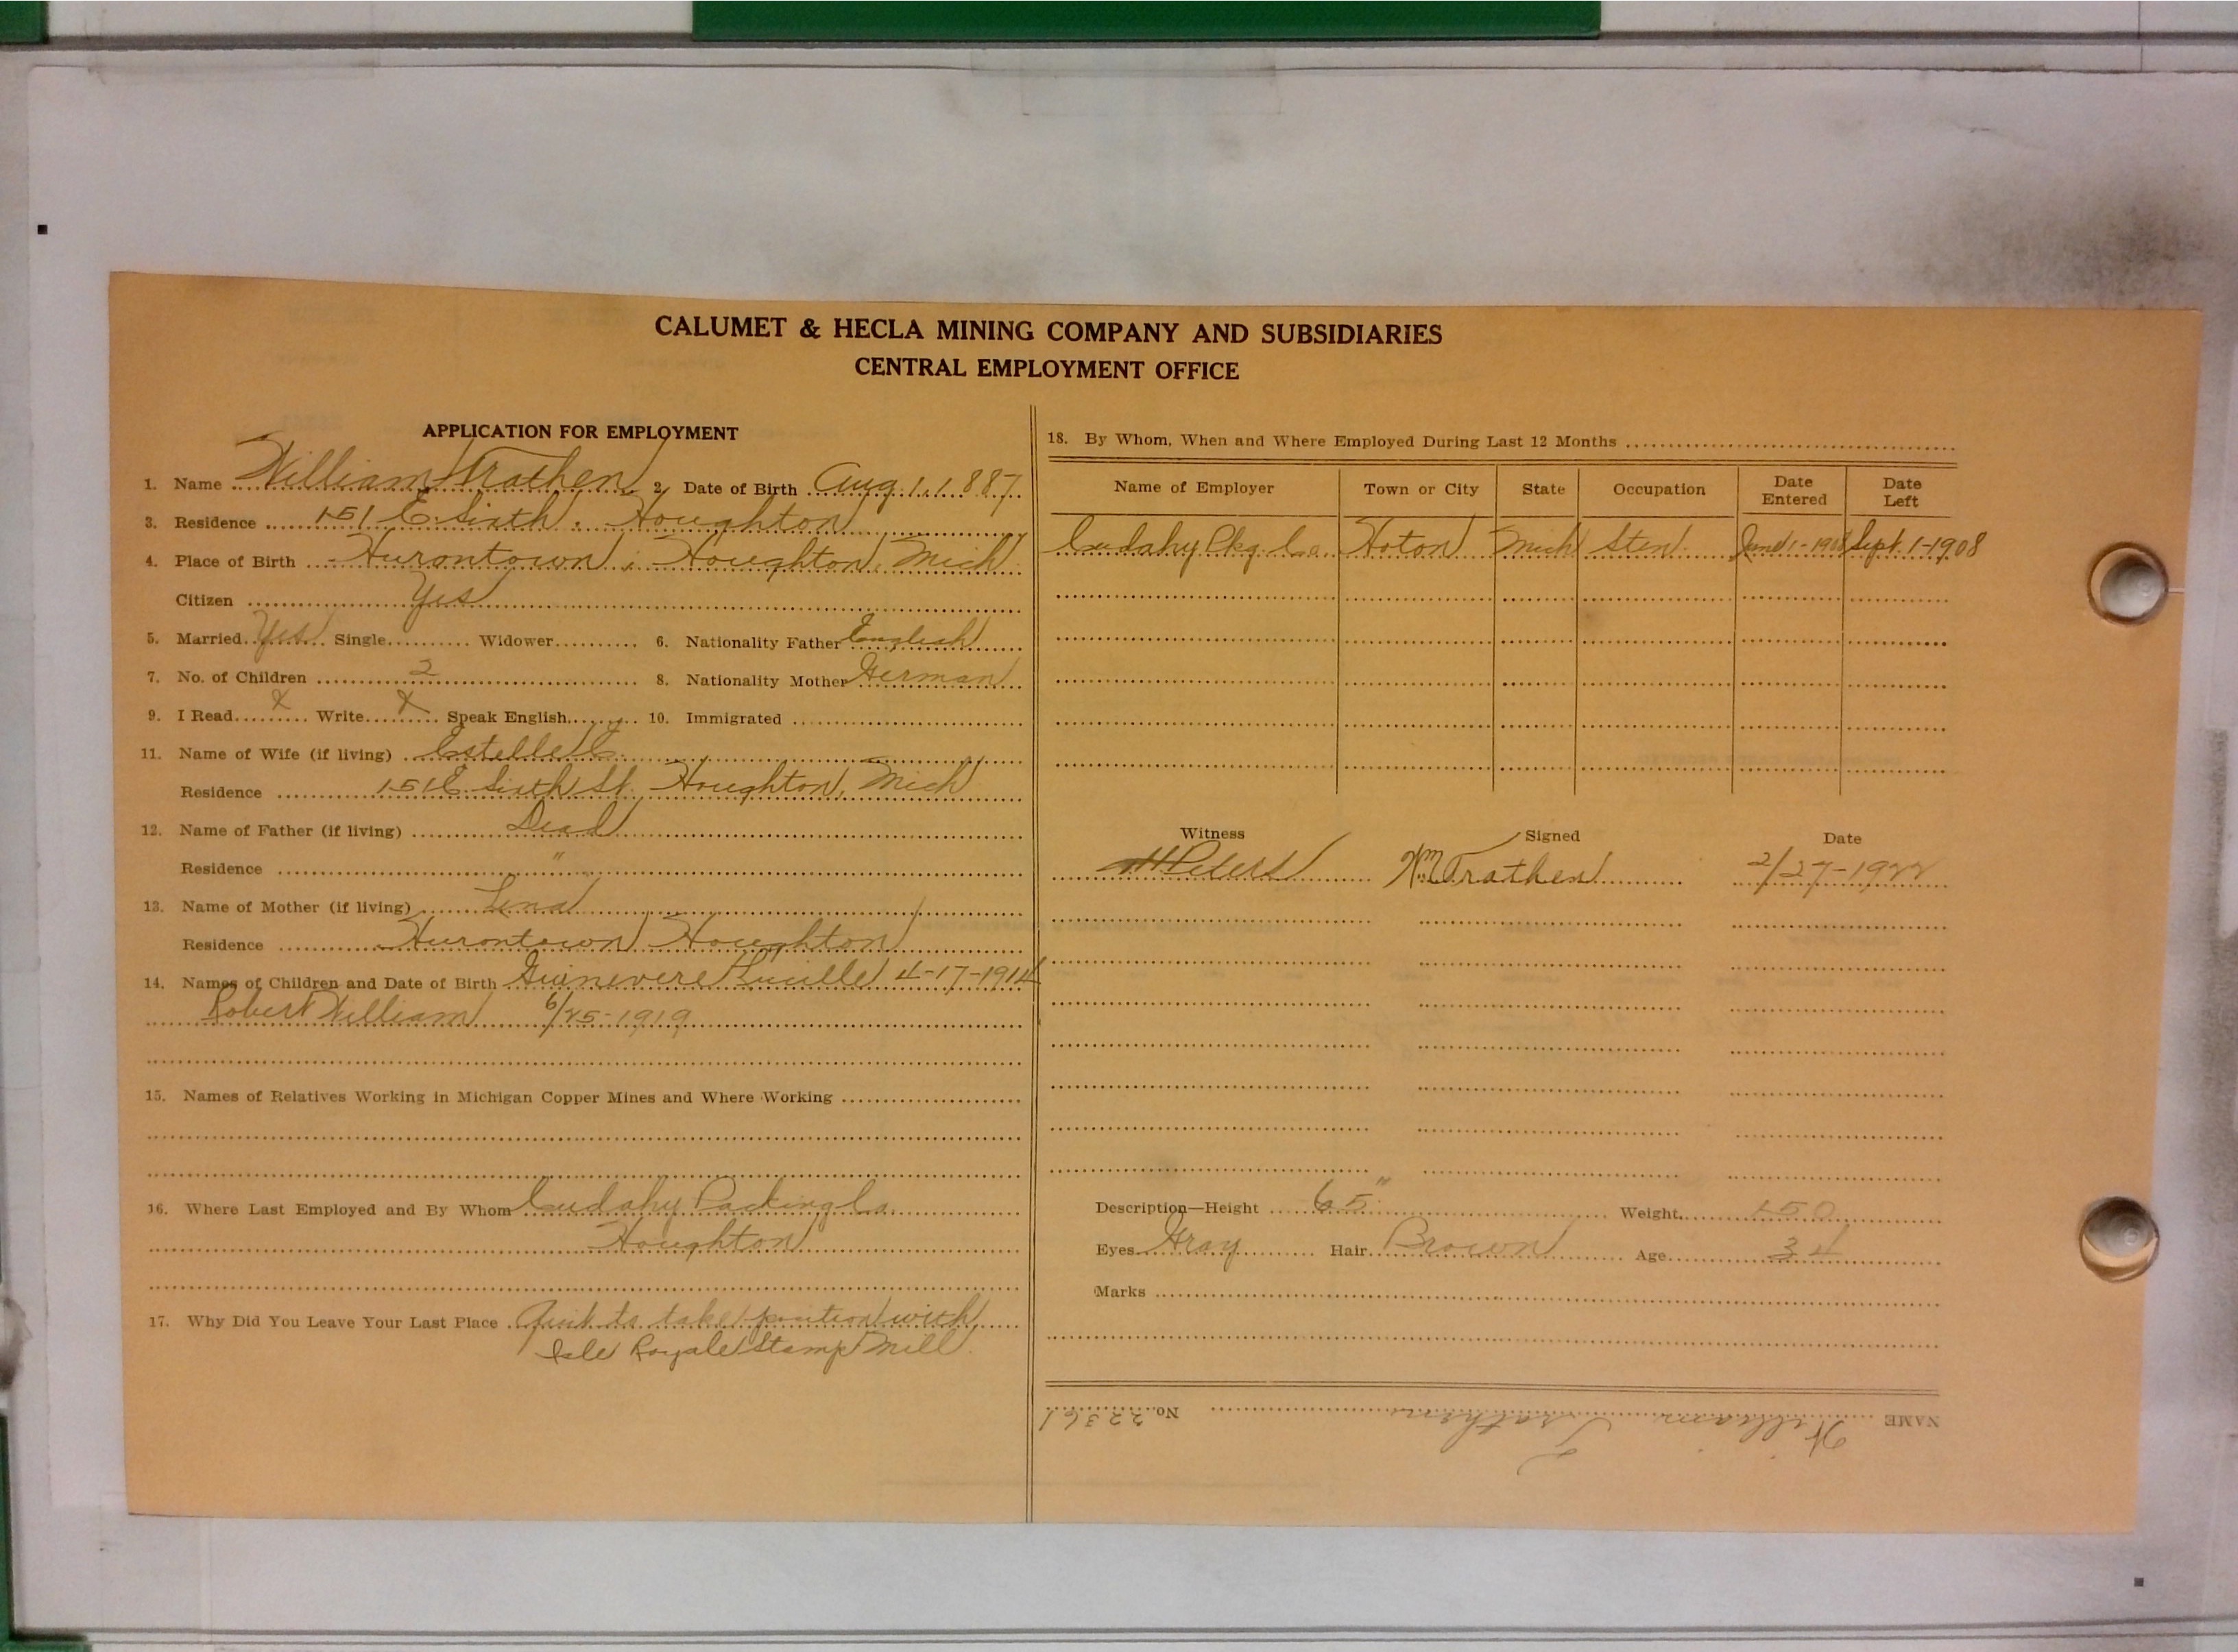 CALUMET & HECLA MINING COMPANY AND SUBSIDIARIES
CENTRAL EMPLOYMENT OFFICE
APPLICATION FOR EMPLOYMENT
1. Name William Trathen 2. Date of Birth Aug 1, 1887
3. Residence 151 E. Sixth. Houghton
4. Place of Birth Hurontown, Houghton, Mich
Citizen Yes
5. Married Yes Single Widower 6. Nationality Father English
7. No. of Children 2 8. Nationality Mother German
9. I Read X Write X Speak English 10. Immigrated
11. Name of Wife (if living) Estelle C.
Residence 151 E. Sixth St. Houghton, Mich
12. Name of Father (if living) Dead
Residence "
13. Name of Mother (if living) Lena
Residence Hurontown Houghton
14. Names of Children and Date of Birth Guinevere Lucille 4-17-1914
Robert William 6/25-1919
15. Names of Relatives Working in Michigan Copper Mines and Where Working
16. Where Last Employed and By Whom Cudahy Packing Co.
Houghton
17. Why Did You Leave Your Last Place Quit to take position with
Isle Royale Stamp Mill.
18. By Whom, When and Where Employed During Last 12 Months
Name of Employer Town or City State Occupation Date Entered Date Left
Cudahy Pkg. Co. Hoton Mich Sten. June 1-1908 Sept. 1-1908
Witness Signed Date
H Peters Wm Trathen 2/27-1922
Description—Height 65" Weight 150
Eyes Gray Hair Brown Age 34
Marks
NAME William Trathen No. 22361